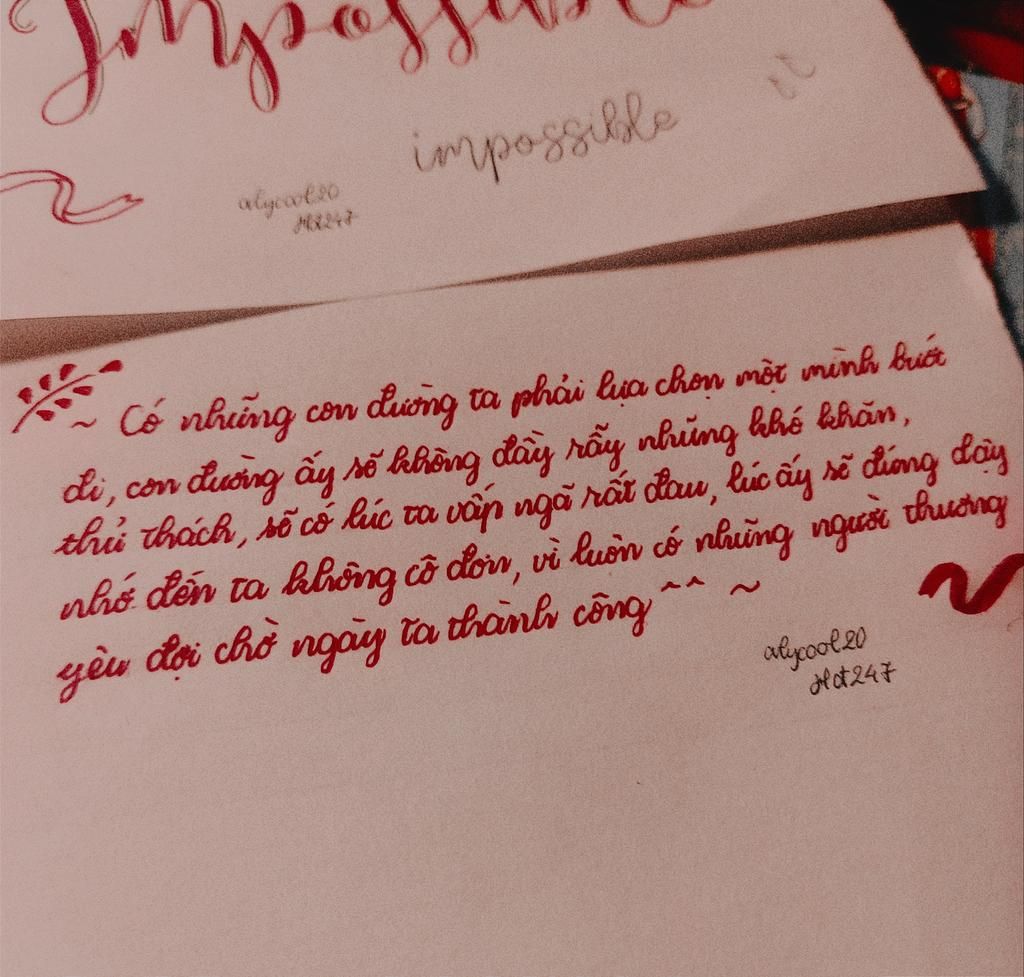 Impossible
impossible
alycool20
Ht247
~ Có những con đường ta phải lựa chọn một mình bước
đi, con đường ấy sẽ không đầy rẫy những khó khăn,
thử thách, sẽ có lúc ta vấp ngã rất đau, lúc ấy sẽ đứng dậy
nhớ đến ta không cô đơn, vì luôn có những người thương
yêu đợi chờ ngày ta thành công ^^ ~
alycool20
Ht247